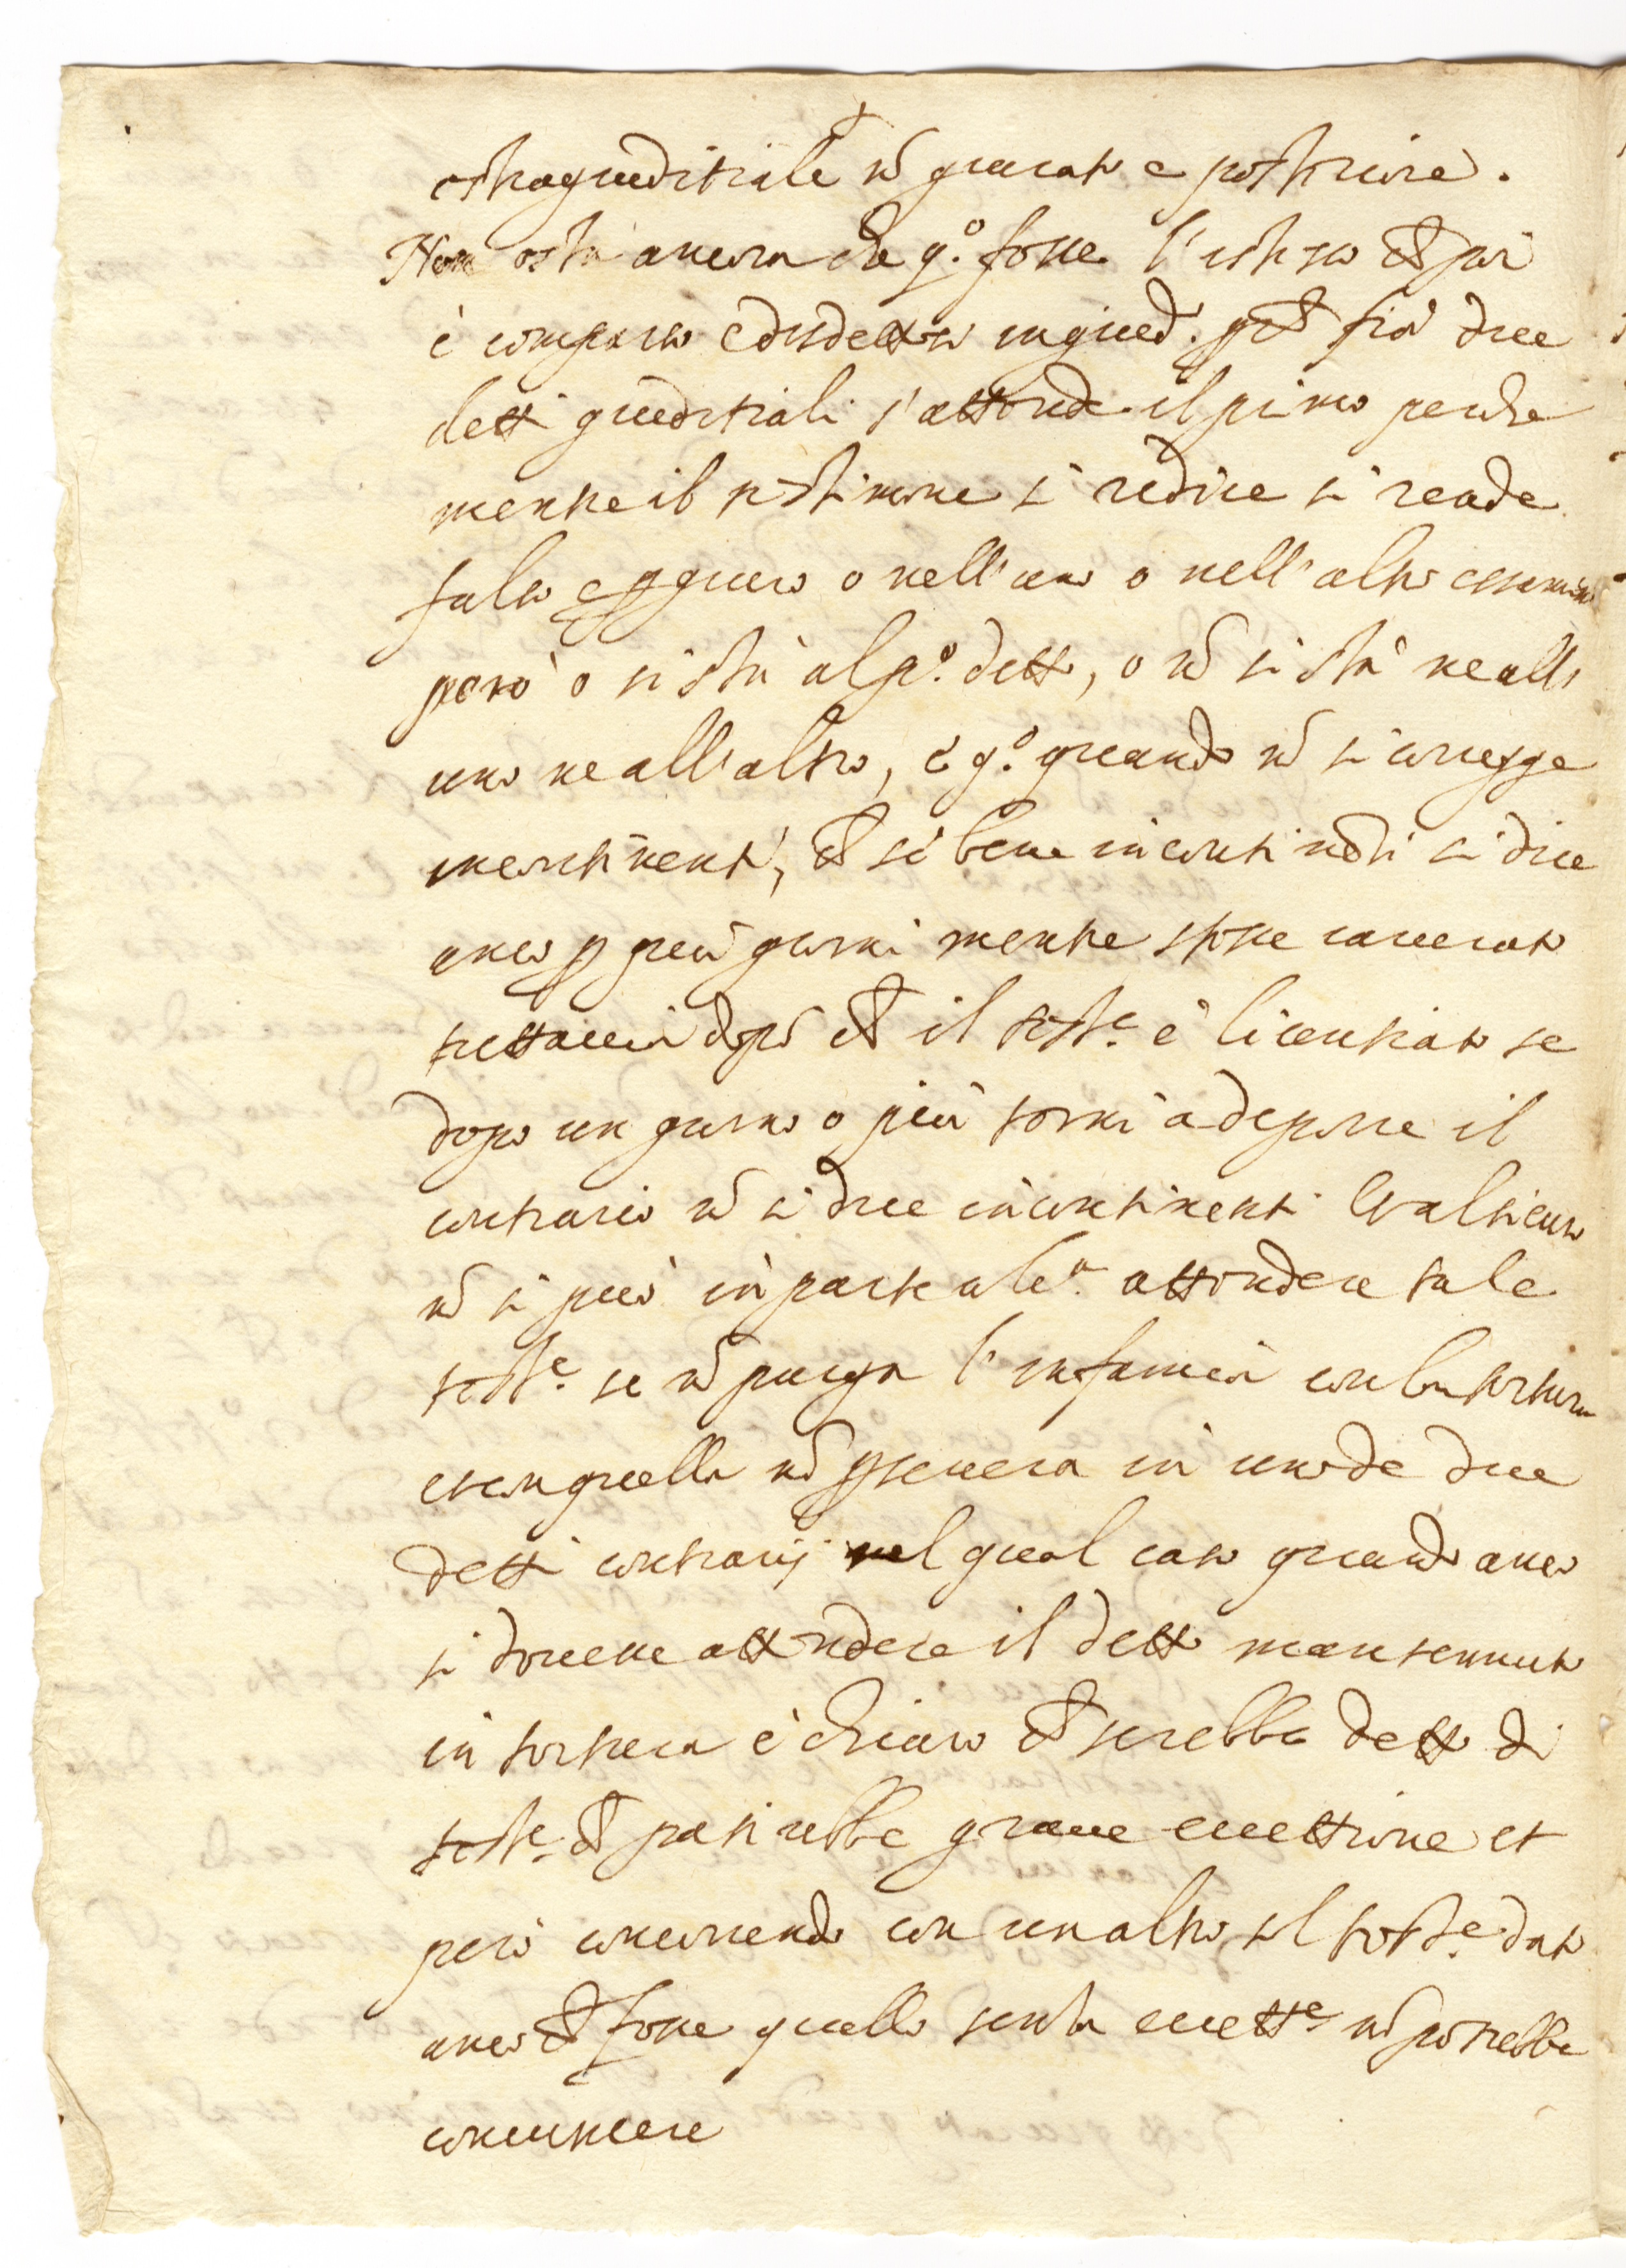 estragiuditiale nō giurato e posteriore.
Non osta ancora che q.º fosse l'esteso ch poi
è comparso e disdettosi in giud. p ch frà due
detti giuditiali s'attende il primo perche
mentre il testimone si ridice si rende
falso e pgiuro o nell'uno o nell'altro essamine
però o si stà al p.º detto, o nō si stà ne all
uno ne all'altro, e q.º quando nō si corregge
incontinenti, ch se bene incontinēti si dice
anco p più giorni mentre stasse carcerato
tuttavia dopò ch il test.e è licentiato se
dopo un giorno o più torni à deporre il
contrario nō si dice incontinenti
nō si può in parte al.a attendere tale
test.e se nō purga l'infamia con la tortura
et in quella nō psevera in uno de due
detti contrarij nel qual caso quando anco
si dovesse attendere il detto mantennuto
in tortura è chiaro ch sarebbe detto di
test.e ch patirebbe grave eccettione et
però concorrendo con un altro tal test.e dato
anco ch fosse quello senza eccett.e nō potrebbe
convincere